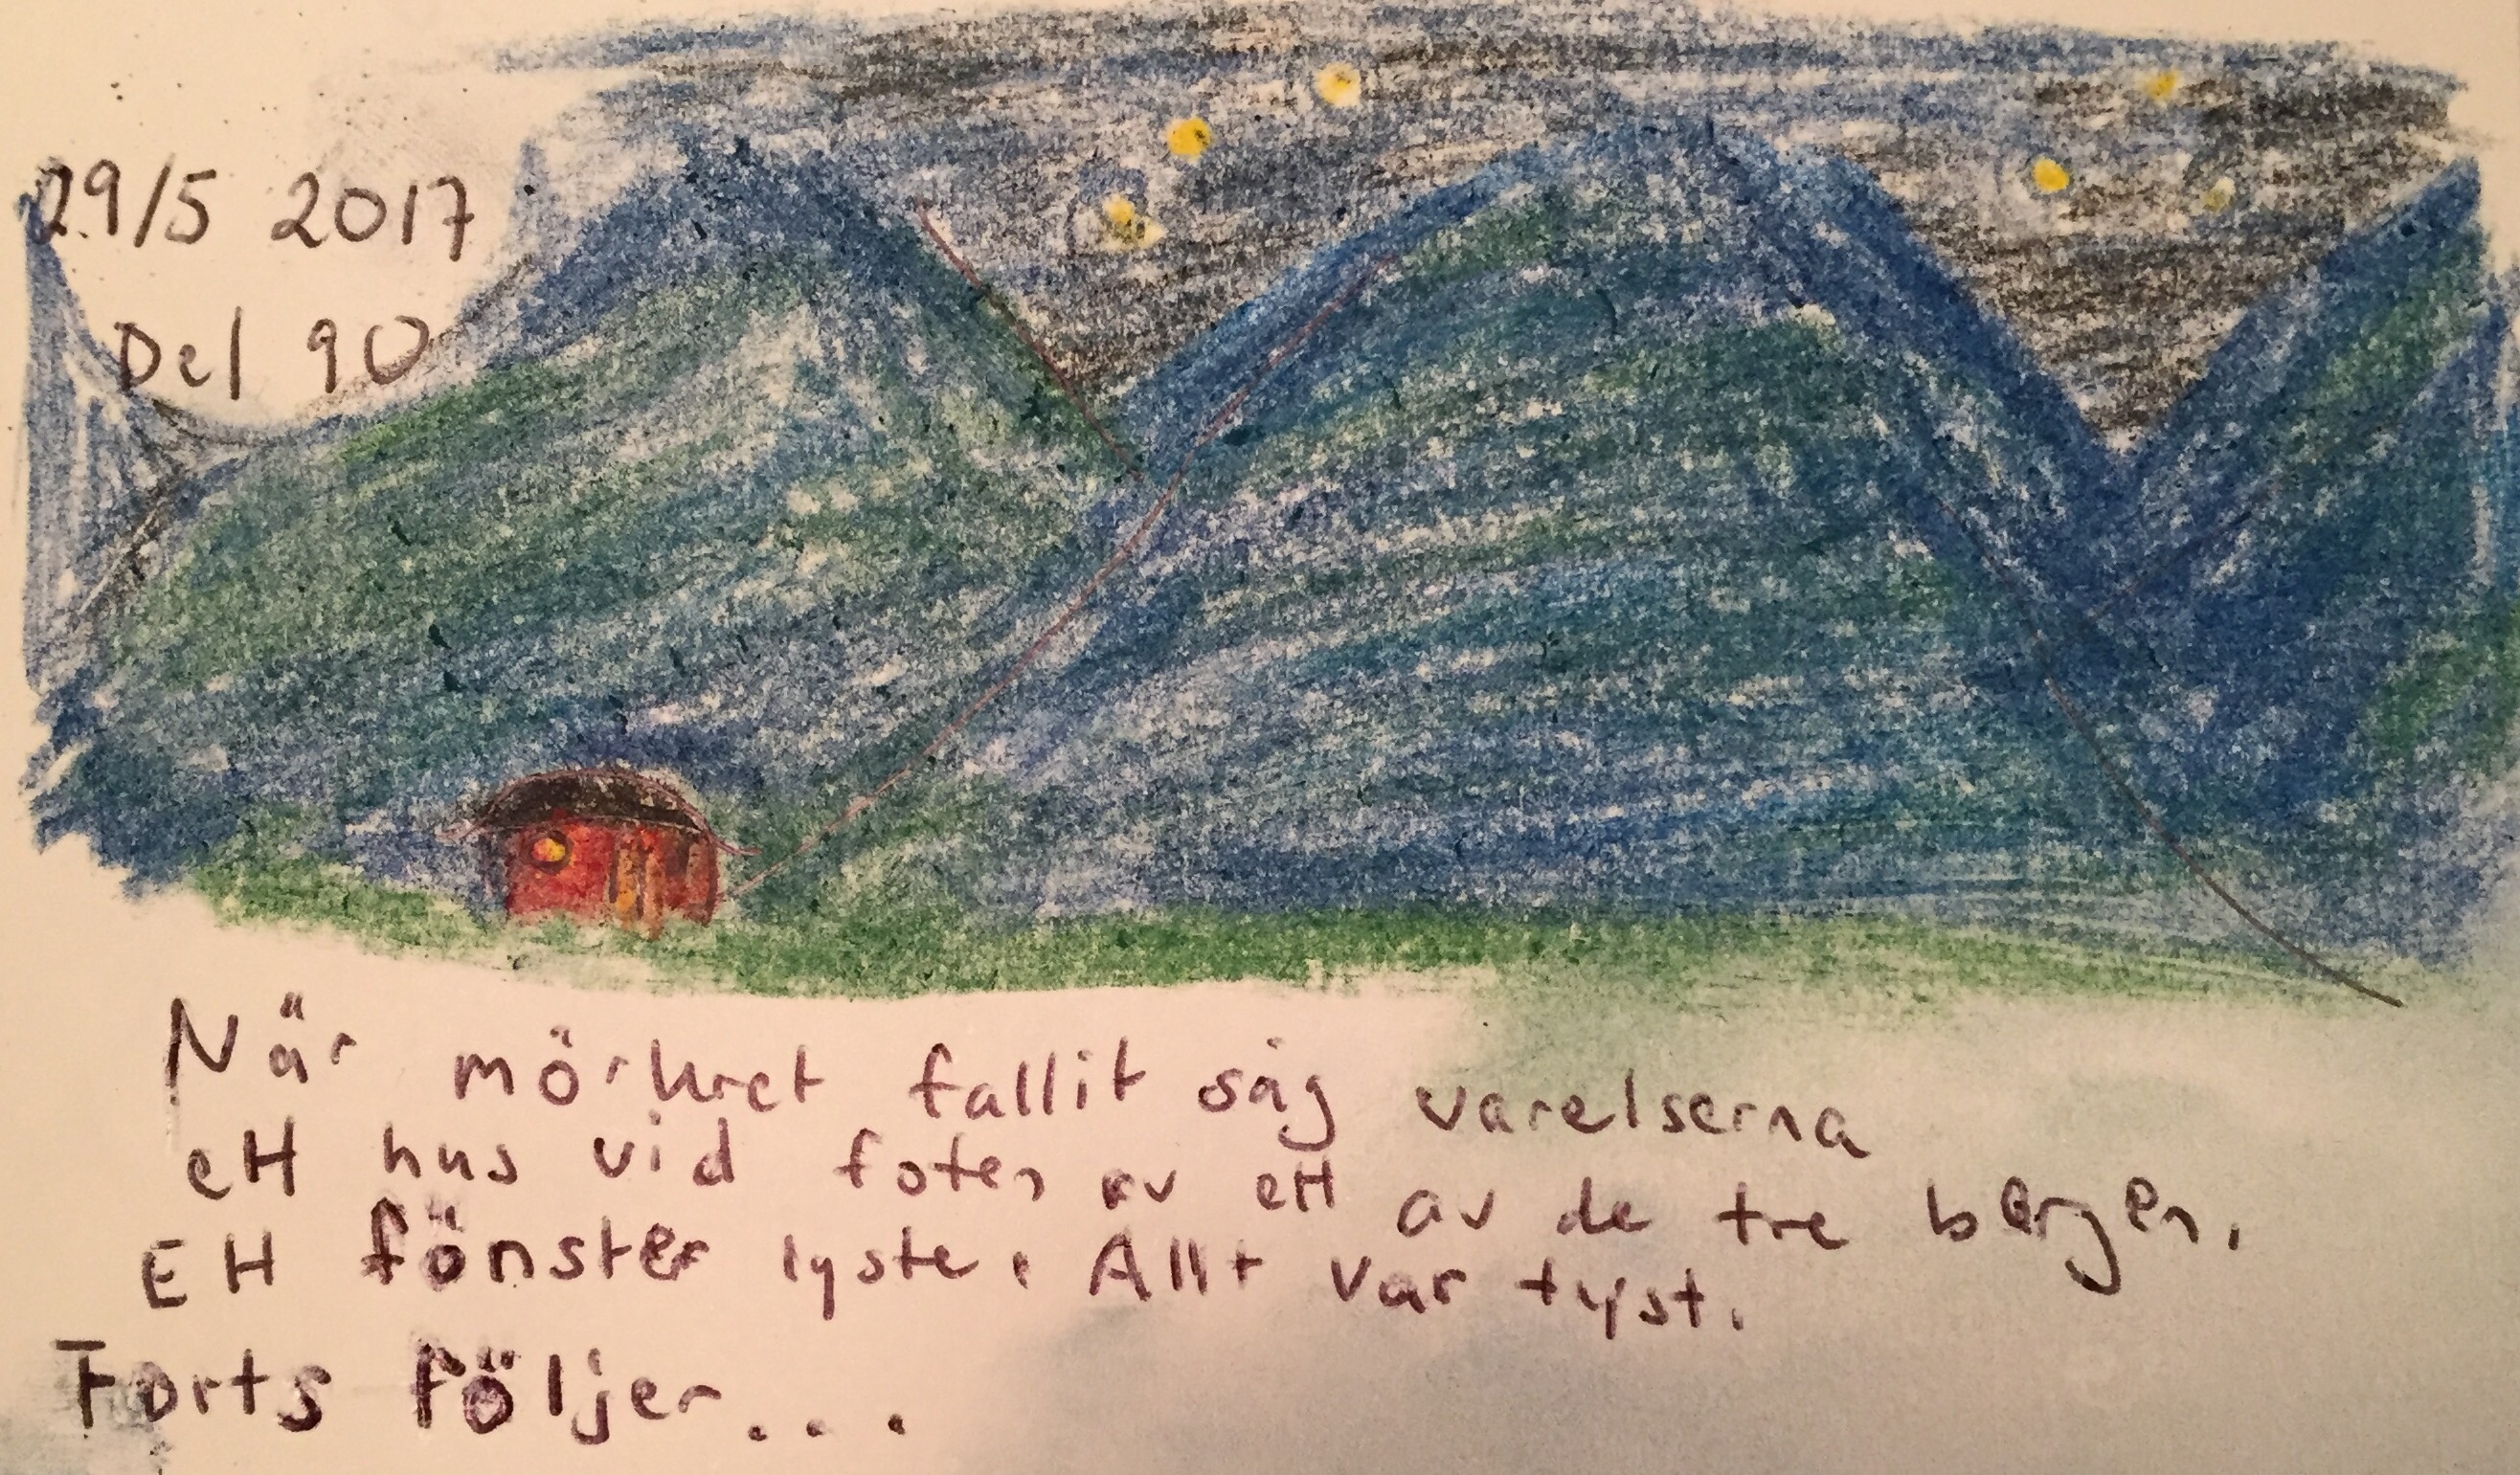 29/5 2017
Del 90
När mörkret fallit såg varelserna
ett hus vid foten av ett av de tre bergen.
Ett fönster lyste. Allt var tyst.
Forts följer...